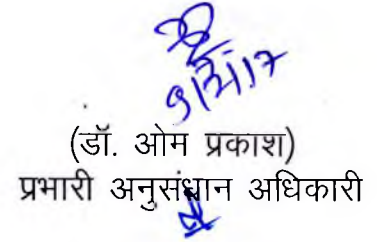 (डॉ. ओम प्रकाश)
प्रभारी अनुसंधान अधिकारी